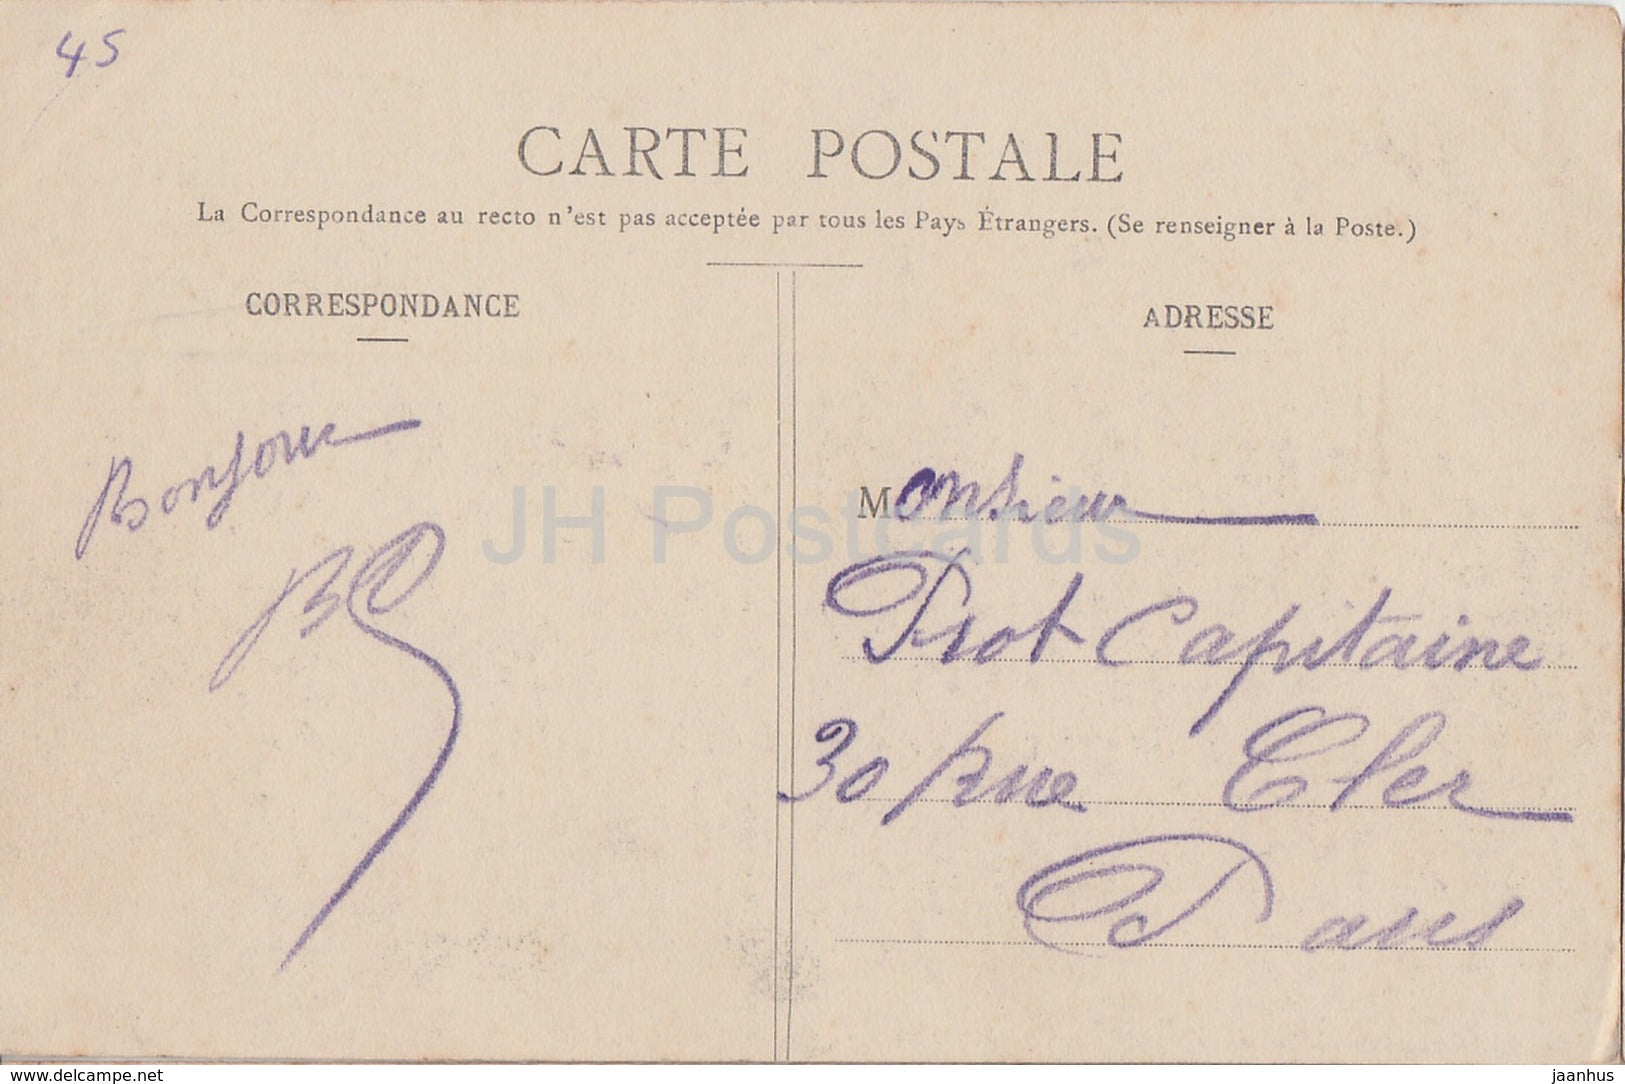 45
CARTE POSTALE
La Correspondance au recto n'est pas acceptée par tous les Pays Étrangers. (Se renseigner à la Poste.)
CORRESPONDANCE
ADRESSE
Bonjour
Monsieur
Prot Capitaine
30 rue Cler
Paris
JH Postcards
www.delcampe.net
jaanhus